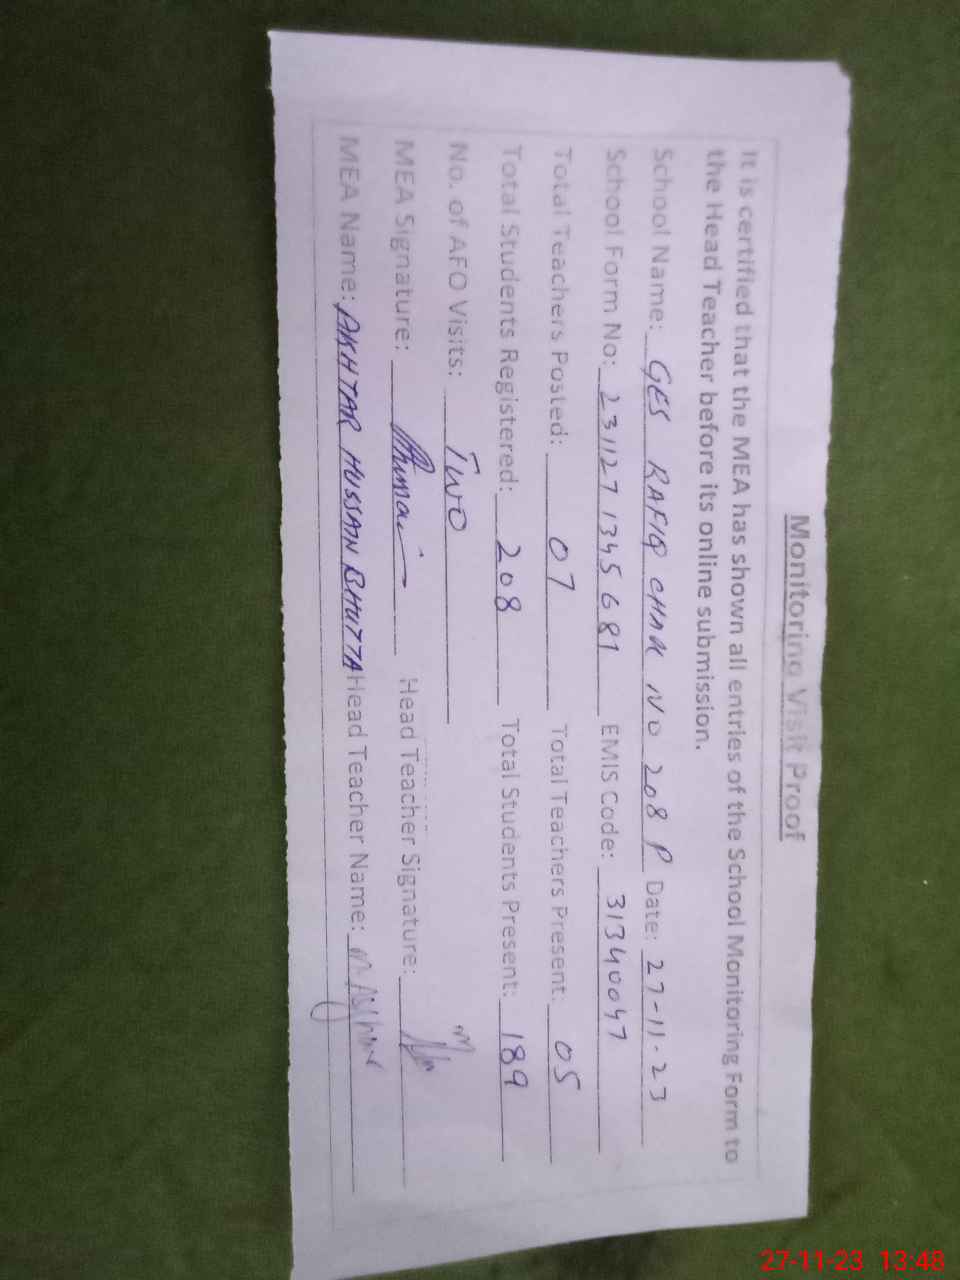 Monitoring Visit Proof
It is certified that the MEA has shown all entries of the School Monitoring Form to
the Head Teacher before its online submission.
School Name: GES RAFIQ CHAK NO 208 P Date: 27-11-23
School Form No: 231127 1345 681 EMIS Code: 31340047
Total Teachers Posted: 07 Total Teachers Present: 05
Total Students Registered: 208 Total Students Present: 189
No. of AFO Visits: Two
MEA Signature: Head Teacher Signature:
MEA Name: AKHTAR HUSSAIN BHUTTA Head Teacher Name: M. Asghar
27-11-23 13:48